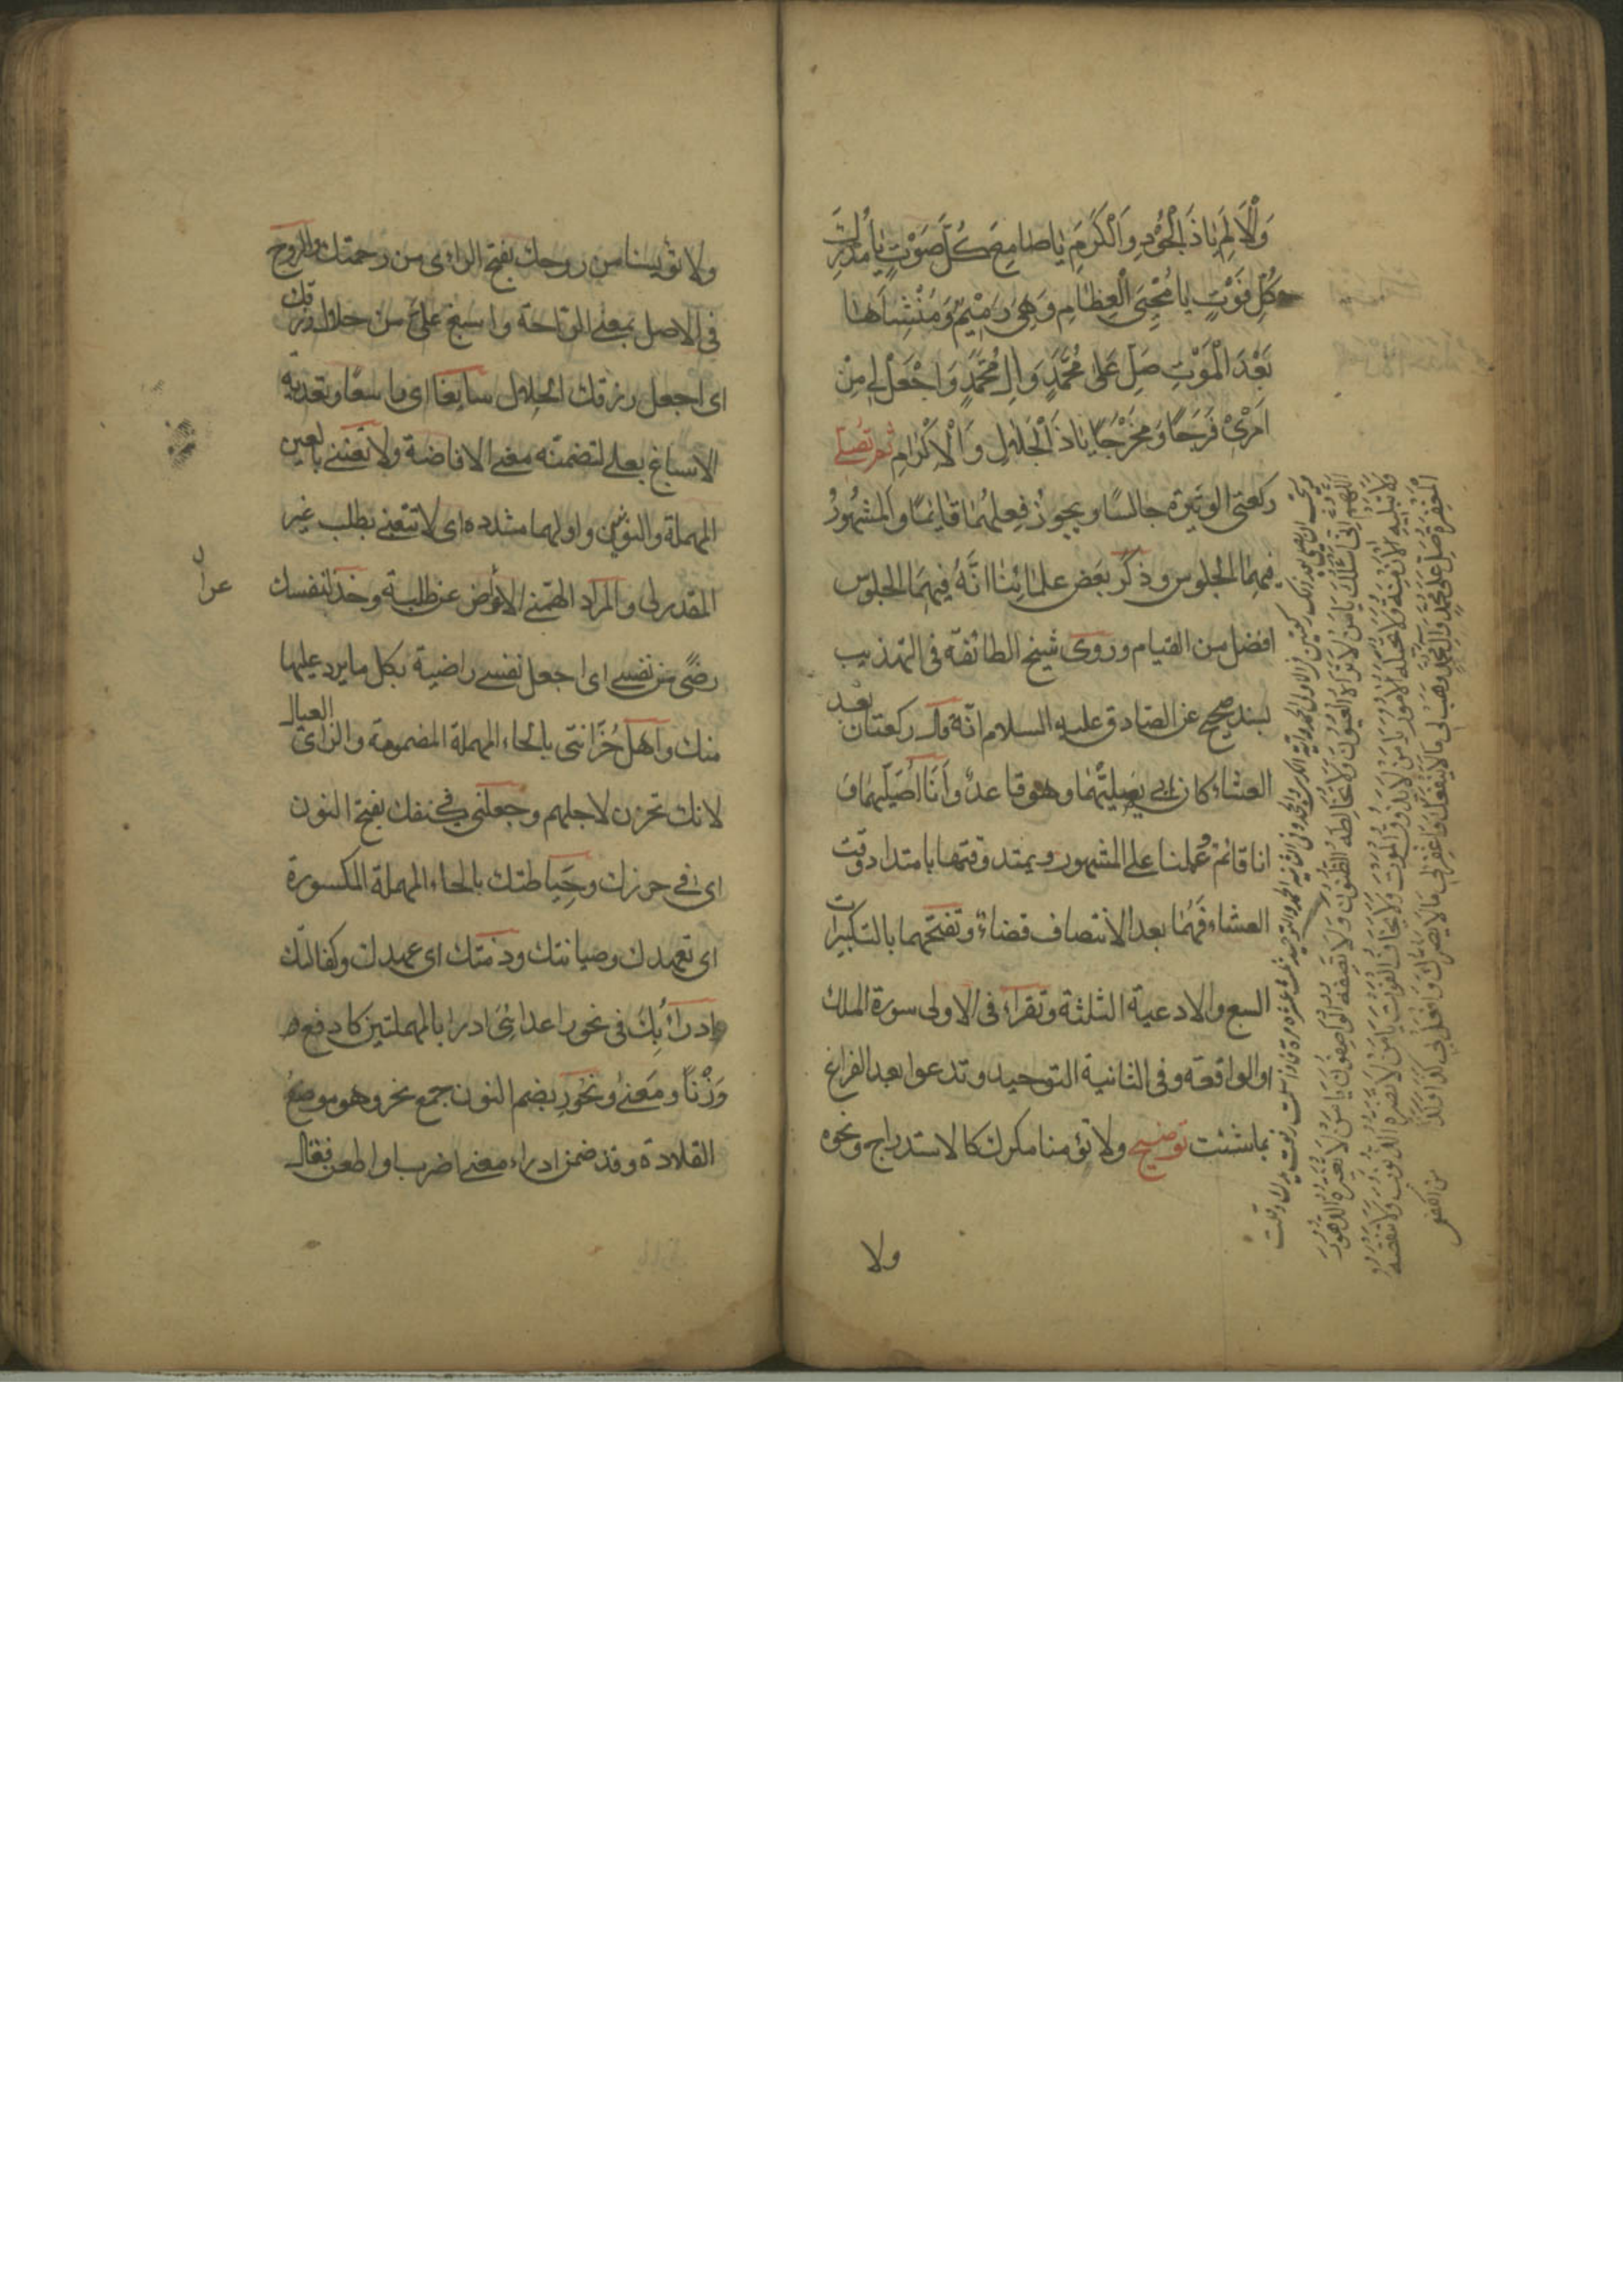 وَالْاَلَمِ يَاذَ الْجُوْدِ وَالْكَرَمِ يَا صَامِعَ كُلِّ صَوْتٍ يَا مُدْرِكَ
كُلِّ فَوْتٍ يَا مُحْيِىَ الْعِظَامِ وَهِىَ رَمِيْمٌ وَمُنْشِأَهَا
بَعْدَ الْمَوْتِ صَلِّ عَلى مُحَمَّدٍ وَالِ مُحَمَّدٍ وَاجْعَلْ لِى مِنْ
اَمْرِىْ فَرَجًا وَمَخْرَجًا يَاذَ الْجَلَالِ وَالْاِكْرَامِ ثم تصلى
ركعتى الوتيرة جالسًا ويجوز فعلهما قائمًا والمشهور
فيهما الجلوس وذكر بعض علمائنا انّه فيهما الجلوس
افضل من القيام وروى شيخ الطائفه فى التهذيب
بسند صحيح عن الصادق عليه السلام انّه قال ركعتان بعد
العشاء كان ابى يصلّيهما وهو قاعد وانا اصلّيهما و
انا قائم وعملنا على المشهور ويمتد وقتها بامتداد وقت
العشاء فهما بعد الانتصاف قضاء وتفتحهما بالتكبيرات
السبع والادعية الثلثة وتقراء فى الاولى سورة الملك
او الواقعه وفى الثانية التوحيد وتدعوا بعد الفراغ
بماشئت توضيح ولا تؤمنا مكرك كالاستدراج ونحوه
ولا
اللهم انى اسئلك يا من لا تراه العيون ولا تخالطه الظنون ولا يصفه الواصفون يا من لا تغيره الدهور
ولا تبليه الازمنة ولا تحيله الامور يا من لا يذوق الموت ولا يخاف الفوت يا من لا تضره الذنوب ولا تنقصه
المغفرة صل على محمد وال محمد وهب لى ما لا ينقصك واغفر لى ما لا يضرك وافعل بى كذا وكذا
ولا تؤيسنا من روحك بفتح الراء اى من رحمتك والروح
فى الاصل بمعنى الراحة واسبغ علىّ من حلال رزقك
اى اجعل رزقك الحلال سابغًا اى واسعًا وتعدية
الاسباغ بعلى لتضمنه معنى الافاضة ولا تعننى بالعين
المهملة والنونين واولهما مشدده اى لا تتعبنى بطلب غير
المقدر لى والمراد الهمنى الاعراض عن طلبه وخذ لنفسك
رضًى من نفسى اى اجعل نفسى راضية بكل ما يرد عليها
منك واهل حُزَانتى بالحاء المهملة المضمومة والزاى العيال
لانك تحزن لاجلهم وجعلنى فى كنفك بفتح النون
اى فى حرزك وحِيَاطتك بالحاء المهملة المكسورة
اى تعهدك وصيانتك وذمتك اى عهدك وكفالتك
وادرأ بك فى نحور اعدائى ادرا بالمهملتين كادفع
وَزْنًا ومَعنىً ونُحُور بضم النون جمع نحر وهو موضع
القلادة وقد ضمن ادراء معنى اضرب او اطعن فقال